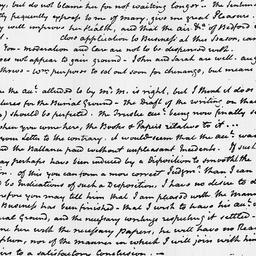 y, but do not blame her for not waiting longer.. The sentim
ly frequently express to me of many, give me great Pleasure.
y will improve her Health, and that the air to Medford
d. close application to Business at the Season, can
You. moderation and care are not to be dispensed with.
oes not appear to gain ground - John and Sarah are well. Aug
throws. Wm purposes to set out soon for Chenango, but means
the acct. alluded to by Mr. M. is right, but I think it does
lures for the Burial Ground - the Draft of the writing on that
) should be perfected. The Trustee acct. being now finally se
when you were here, the Books & Papers relative to it...
your letter to the contrary. it would seem that the acct. was
and the Ballance paid without unpleasant Incidents. If such
ay perhaps have been induced by a Disposition to smooth the
on. of this you can form a more correct Judgmt. than I can
to be Indications of such a Disposition, I have no desire to d
refore you may tell him that I am pleased with the Mann
Business has been finished - that I wish to have his acct.
ial Ground, and the necessary writings respecting it settled
ne her with the necessary Papers, he will have no Rea
ption, nor of the manner in which I will join with him
irs to a satisfactory Conclusion. —